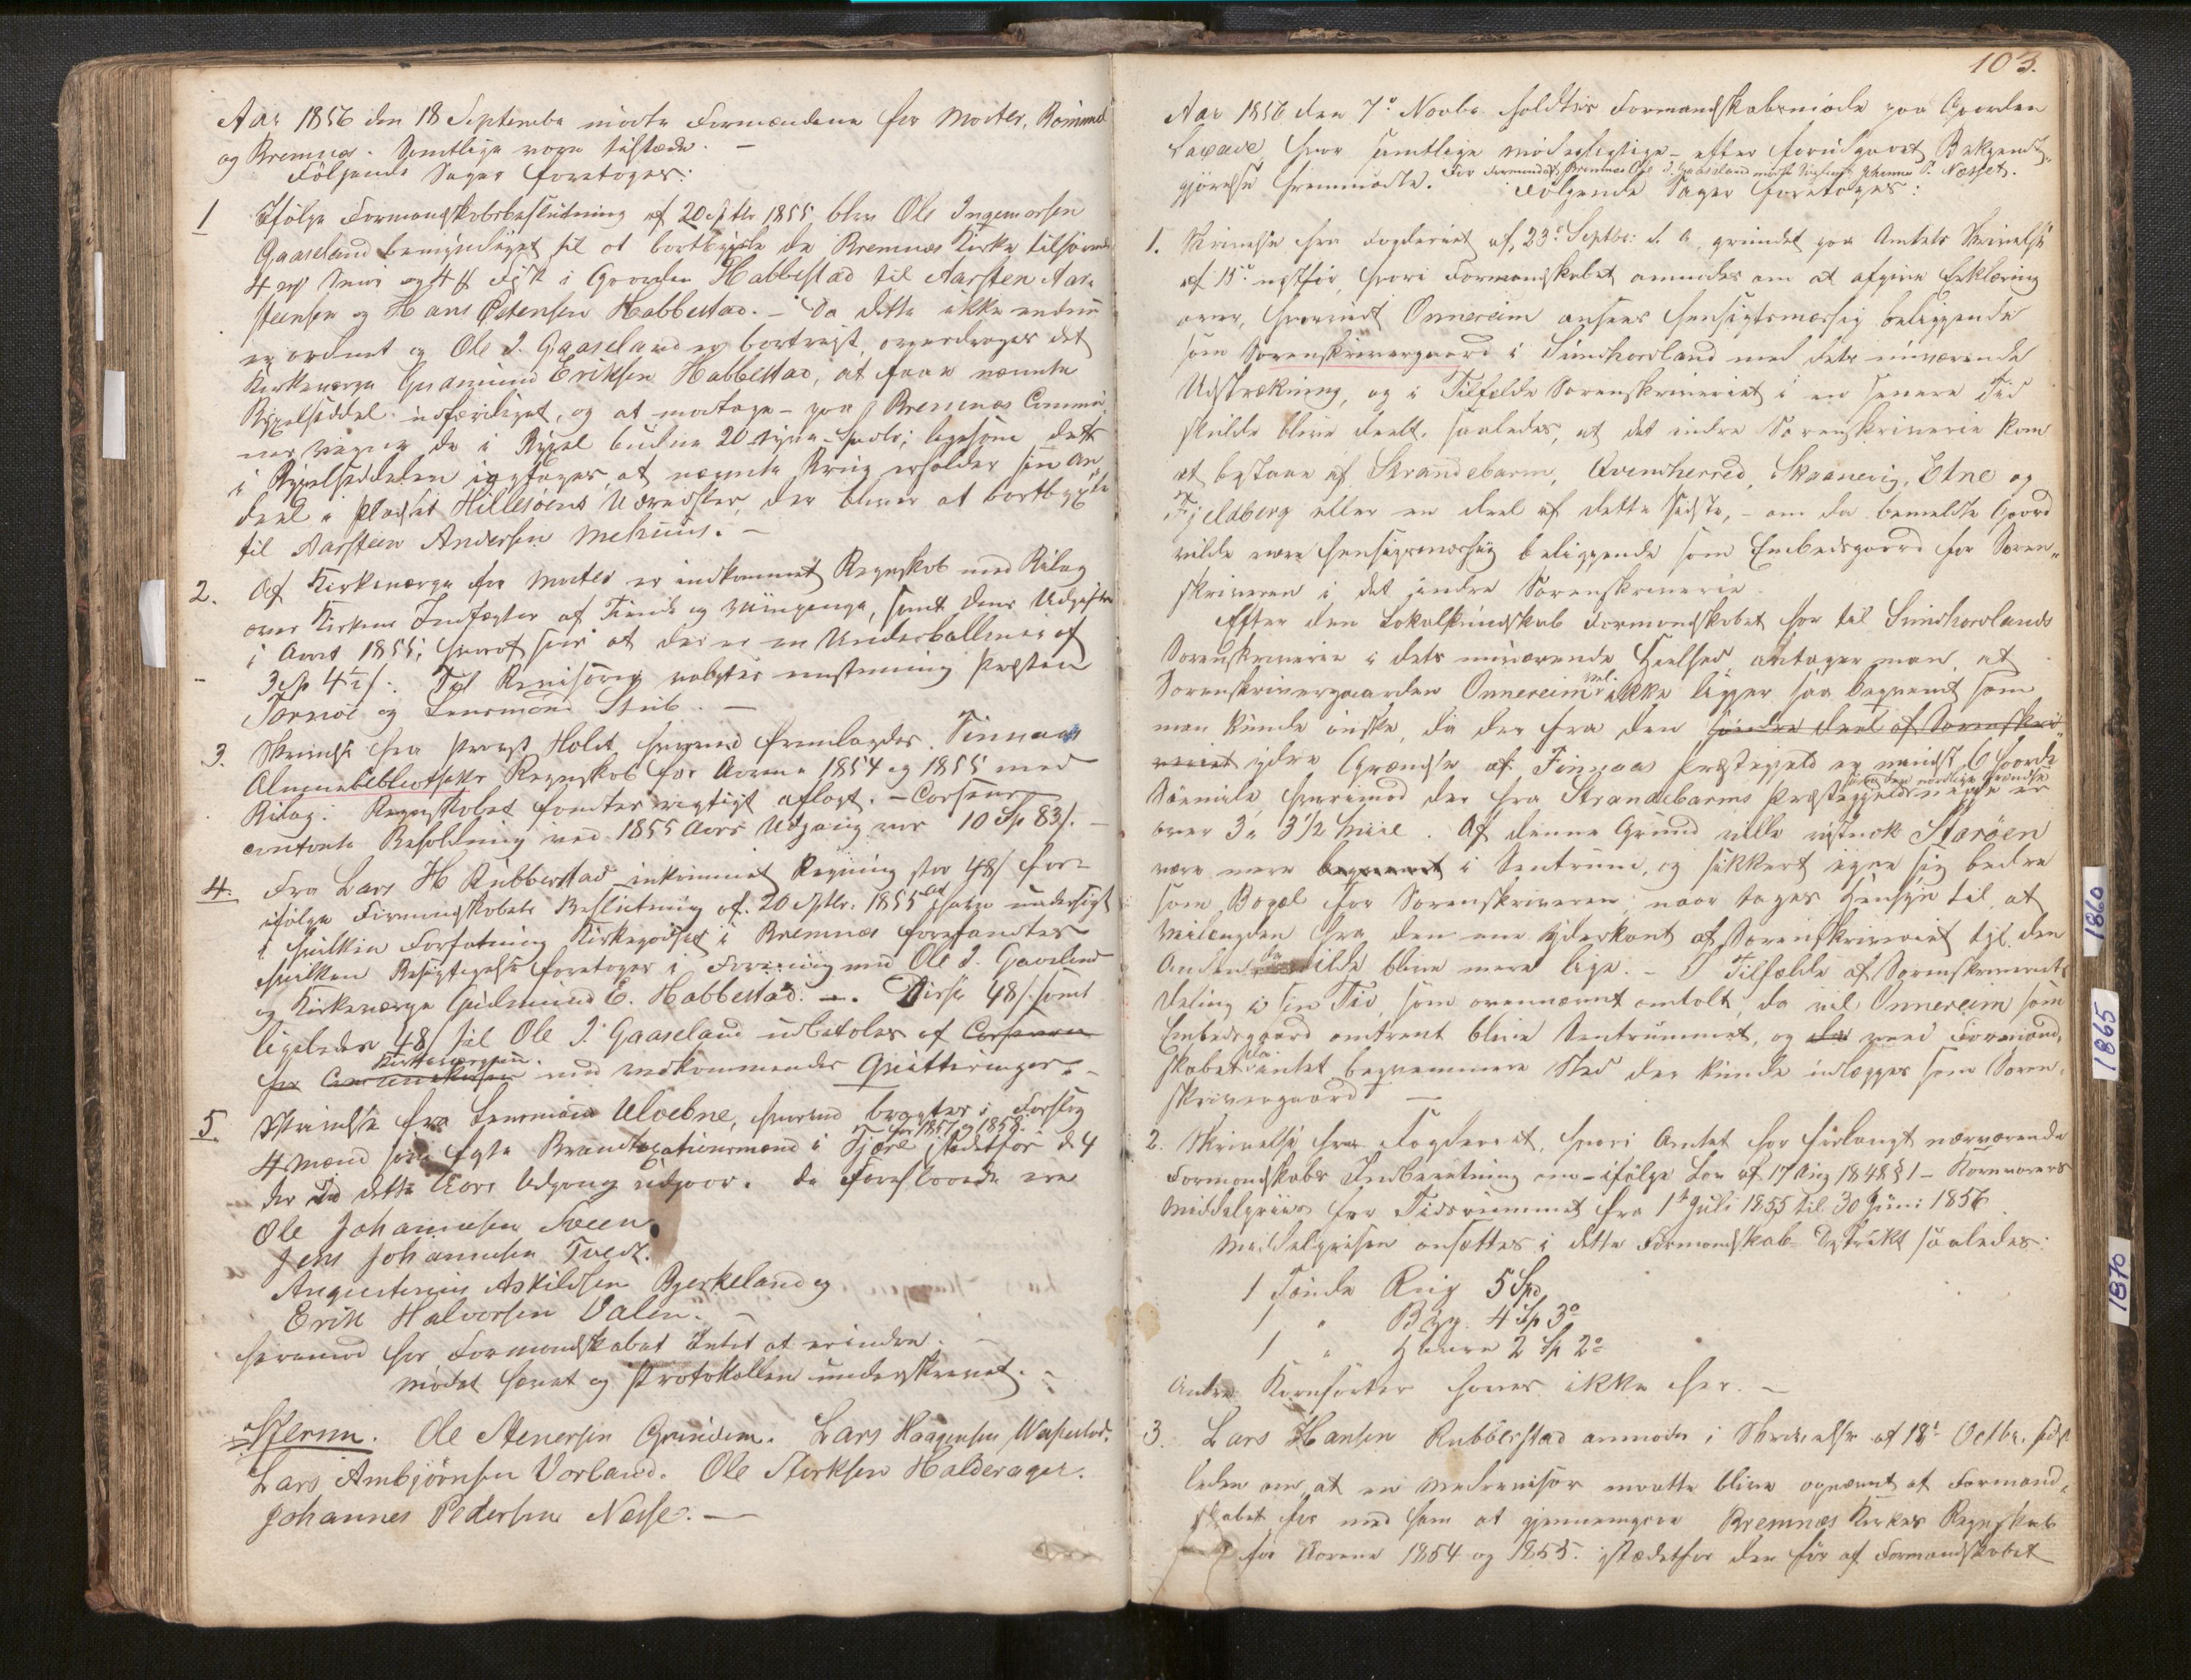 Aar 1856 den 18 September mødte Formændene for Moster, Bømmel
og Bremnæs. Samtlige vare tilstæde. —
Følgende Sager foretoges:
1 Ifølge Formandskabsbeslutning af 20 Septbr. 1855 blev Ole Ingemarsen
Gaaseland bemyndiget til at bortbygsle de Bremnæs Kirke tilhørende
i Gaarden Habbestad til Aarsteen Aar-
steensen og Hans Østensen Habbestad. — Da dette ikke endnu
er ordnet og Ole I. Gaaseland er bortreist, overdrages det
Kirkeværge Gudmund Eriksen Habbestad, at faae nævnte
Bygselseddel udfærdiget, og at modtage – paa Bremnæs Commu-
nes Vegne de i Bygsel budne 20 – tyve – Spdlr; ligesom dette
i Bygselseddelen at nævnte Brug erholder sin An-
deel i Pladset Hillesøens Udredsler, der bliver at bortbygsle
til Aarsteen Andersen Mehuus. —
2. Af Kirkeværge for Moster er indkommet Regnskab med Bilag
over Kirkens Indtægter af Tiende og , samt dens Udgifter
i Aaret 1855; hvoraf sees at der er en Underballence af
3 Sp 4½ s. Til Revisorer valgtes eenstemmig Præsten
Tornøe og Lensmand Stub. —
3. Skrivelse fra Provst Holst hvorved fremlagdes Finnaas
Almuebibliotheks Regnskab for Aarene 1854 og 1855 med
Bilag. Regnskabet fandtes rigtigt aflagt. —
contante Beholdning ved 1855 Aars Udgang var 10 Sp 83 s. —
4. Fra Lars H Rubbestad indkommet Regning stor 48 s for
ifølge Formandskabets Beslutning af 20 Septbr. 1855 at have undersøgt
i hvilken Forfatning Kirkegodset i Bremnæs forefandtes
hvilken Besigtigelse foretoges i Forening med Ole I. Gaaseland
og Kirkeværge Gudmund E. Habbestad. —. Disse 48 s. samt
ligeledes 48 s til Ole I. Gaaseland udbetales af
Kirkeværgen
mod vedkommendes Qvitteringer. —
5 Skrivelse fra Lensmand Uloebne, hvorved bragtes i Forslag
for 1857 og 1858
4 Mænd som faste Brandtaxationsmænd i Fjære istedetfor de 4
der ved dette Aars Udgang udgaar. De Foreslaaede ere
Ole Johannesen Sveen,
Jens Johannesen Tvedt.
Augustinius Askildsen Bjerkeland og
Erik Halvorsen Valen. —
hvorimod har Formandskabet Intet at erindre. —
Mødet hævet og Protokollen underskrevet. —
Stersen. Ole Stenersen Grinden. Lars Haagensen
Lars Ambjørnsen Vorland. Ole Størksen Halderager.
Johannes Pedersen Nesse. —
103.
Aar 1856 den 7de Novbr. holdtes Formandskabsmøde paa Gaarden
Laxave, hvor samtlige mødepligtige – efter forudgaaet Bekjendt-
gjørelse fremmødte. For Formand i Bremnæs Ole I. Gaaseland mødte Johannes P. Nesset.
Følgende Sager foretoges:
1. Skrivelse fra Fogderiet af 23de Septbr. d. A. grundet paa Amtets Skrivelse
af 15de næstfør, hvori Formandskabet anmodes om at afgive Erklæring
over, hvorvidt Onnereim ansees hensigtsmæssig beliggende
som Sorenskrivergaard i Søndhordland med dets nuværende
Udstrækning, og i Tilfælde Sorenskriveriet i en senere Tid
skulde blive deelt, saaledes, at det indre Sorenskriverie kom
at bestaae af Strandebarm, Qvindherred, Skaanevig, Etne og
Fjeldberg eller en deel af dette sidste, – om da bemeldte Gaard
vilde være hensigtsmæssig beliggende som Embedsgaard for Soren-
skriveren i det indre Sorenskriverie.
Efter den Lokalkundskab Formandskabet har til Søndhordlands
Sorenskriverie i dets nuværende Heelhed, antager man, at
Sorenskrivergaarden Onnereim vel ikke ligger saa beqvemt som
man kunde ønske, da der fra den søndre deel af Sorenskri-
veriet ydre Grændse af Finnaas Præstegjeld er mindst 6 haarde
Sømile, hvorimod der fra Strandebarms Præstegjelds nordlige Grændse neppe er
over 3 a 3 1/2 Miil. Af denne Grund ville vistnok Størøen
være mere beqvemt i Sentrum, og sikkert egne sig bedre
som Bopæl for Sorenskriveren; naar tages Hensyn til, at
Veilengden fra den ene Yderkant af Sorenskriveriet til den
Anden da vilde blive mere lige. – I Tilfælde af Sorenskriveriets
Deling i sin Tid, som ovennævnt omtalt, da vil Onnereim som
Embedsgaard omtrent blive Sentrummet, og da veed Formand-
skabet intet beqvemmere Sted der kunde udlægges som Soren-
skrivergaard —
2. Skrivelse fra Fogderiet, hvori Amtet har forlangt nærværende
Formandskabs Indberetning om – ifølge Lov af 17 Aug 1848 § 1 – Kornvarers
Middelpriis for Tidsrummet fra 1ste Juli 1855 til 30 Juni 1856
Middelprisen ansættes i dette Formandskabs Distrikt saaledes:
1 Tønde Rug 5 Spd
1 " Byg 4 Sp 3o
1 " Havre 2 Sp 2o
Andre Kornsorter haves ikke her. —
3. Lars Hansen Rubbestad anmoder i Skrivelse af 18de Octbr. sidst-
leden om at en Medrevisor maatte blive opnævnt af Formand-
skabet for med ham at gjennemgaae Bremnæs Kirkes Regnskab
for Aarene 1854 og 1855. istædetfor den før af Formandskabet
1860
1865
1870